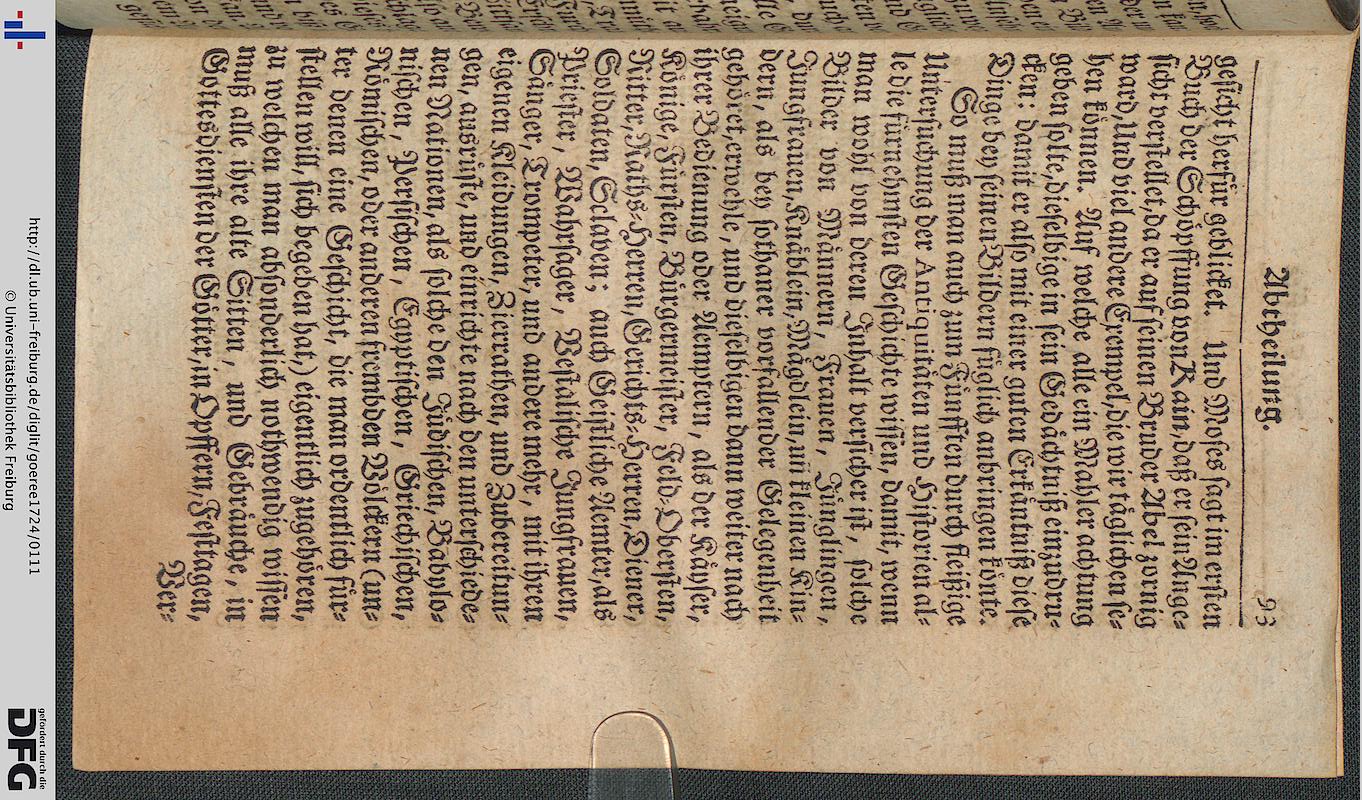 Abtheilung. 93
gesicht herfür geblicket. Und Moses sagt im ersten
Buch der Schöpffung von Kain, daß er sein Ange-
sicht verstellet, da er auf seinen Bruder Abel zornig
ward, Und viel andere Exempel, die wir täglichen se-
hen können. Auf welche alle ein Mahler achtung
geben solte, dieselbige in sein Gedächtniß einzudru-
cken: damit er also mit einer guten Erkäntniß diese
Dinge bey seinen Bildern füglich anbringen könte.
So muß man auch zum Fünfften durch fleißige
Untersuchung der Antiquitäten und Historien al-
le die fürnehmsten Geschichte wissen, damit, wenn
man wohl von deren Inhalt versichert ist, solche
Bilder von Männern, Frauen, Jünglingen,
Jungfrauen, Knäblein, Mägdlein, uñ kleinen Kin-
dern, als bey sothaner vorfallender Gelegenheit
gehöret, erwehle, und dieselbigen dann weiter nach
ihrer Bedienung oder Aemptern, als der Käyser,
Könige, Fürsten, Bürgermeister, Feld-Obersten,
Ritter, Raths-Herren, Gerichts-Herren, Diener,
Soldaten, Sclaven; auch Geistliche Aemter, als
Priester, Wahrsager, Vestalische Jungfrauen,
Sänger, Trompeter, und andere mehr, mit ihren
eigenen Kleidungen, Zierrathen, und Zubereitun-
gen, ausrüste, und einrichte nach den unterschiede-
nen Nationen, als solche den Jüdischen, Babylo-
nischen, Persischen, Egyptischen, Griechischen,
Römischen, oder anderen frembden Völckern (un-
ter denen eine Geschicht, die man ordentlich für-
stellen will, sich begeben hat,) eigentlich zugehören,
zu welchen man absonderlich nothwendig wissen
muß alle ihre alte Sitten, und Gebräuche, in
Gottesdiensten der Götter, in Opffern, Festtagen,
Ver-
http://dl.ub.uni-freiburg.de/diglit/goeree1724/0111
© Universitätsbibliothek Freiburg
gefördert durch die
DFG